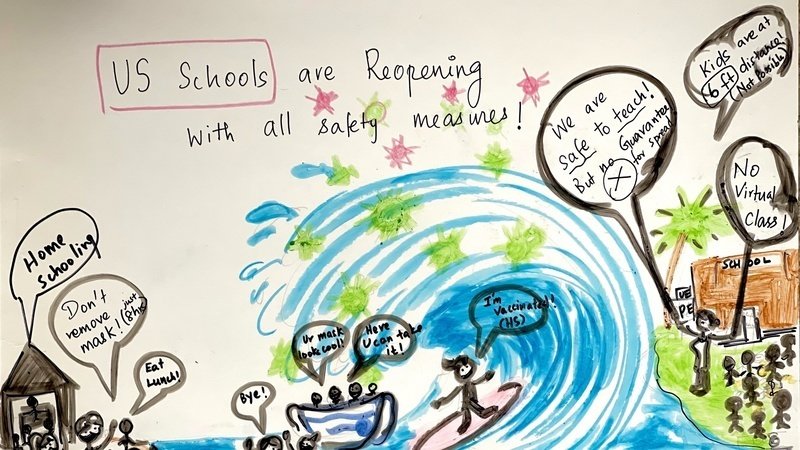 US Schools are Reopening
with all safety measures!
We are
Safe to teach!
But no Guarantee
X for spread
Kids are at
6 ft distance!
(Not possible)
No
Virtual
Class!
SCHOOL
Home
schooling
Don't
remove just
mask! (8hrs)
Eat
Lunch!
Bye!
Ur mask
look cool!
Here
U can take
it!
I'm
Vaccinated!
(HS)